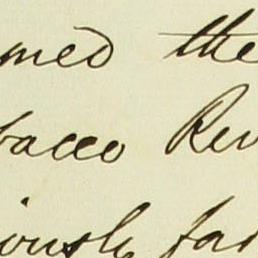 med the
bacco Rev
iously fa